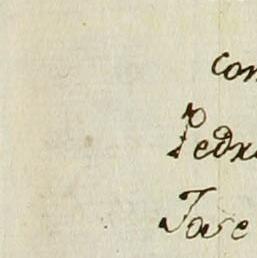 con
Pedro
Jose